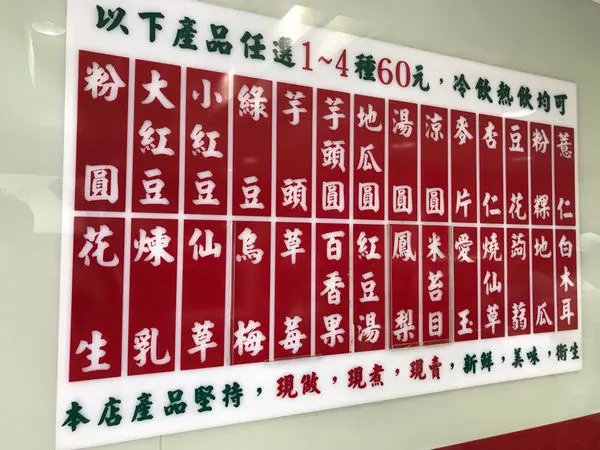 以下產品任選1~4種60元，冷飲熱飲均可
粉圓
大紅豆
小紅豆
綠豆
芋頭
芋頭圓
地瓜圓
湯圓
涼圓
麥片
杏仁
豆花
粉粿
薏仁
花生
煉乳
仙草
烏梅
草莓
百香果
紅豆湯
鳳梨
米苔目
愛玉
燒仙草
蒟蒻
地瓜
白木耳
本店產品堅持，現做，現煮，現賣，新鮮，美味，衛生